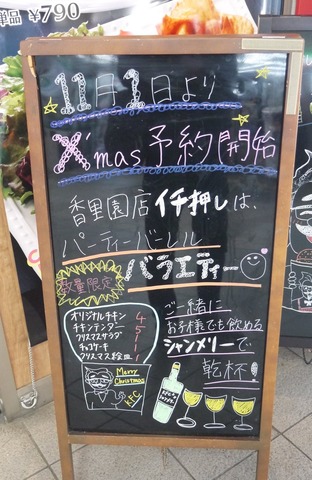 単品 ¥790
11月1日より
X'mas予約開始
香里園店イチ押しは、
パーティーバーレル
バラエティー
数量限定
オリジナルチキン 4
チキンテンダー 5
クリスマスサラダ 1
チョコケーキ 1
クリスマス絵皿 1
ご一緒に
お子様でも飲める
シャンメリーで
乾杯!
Merry
Christmas
KFC